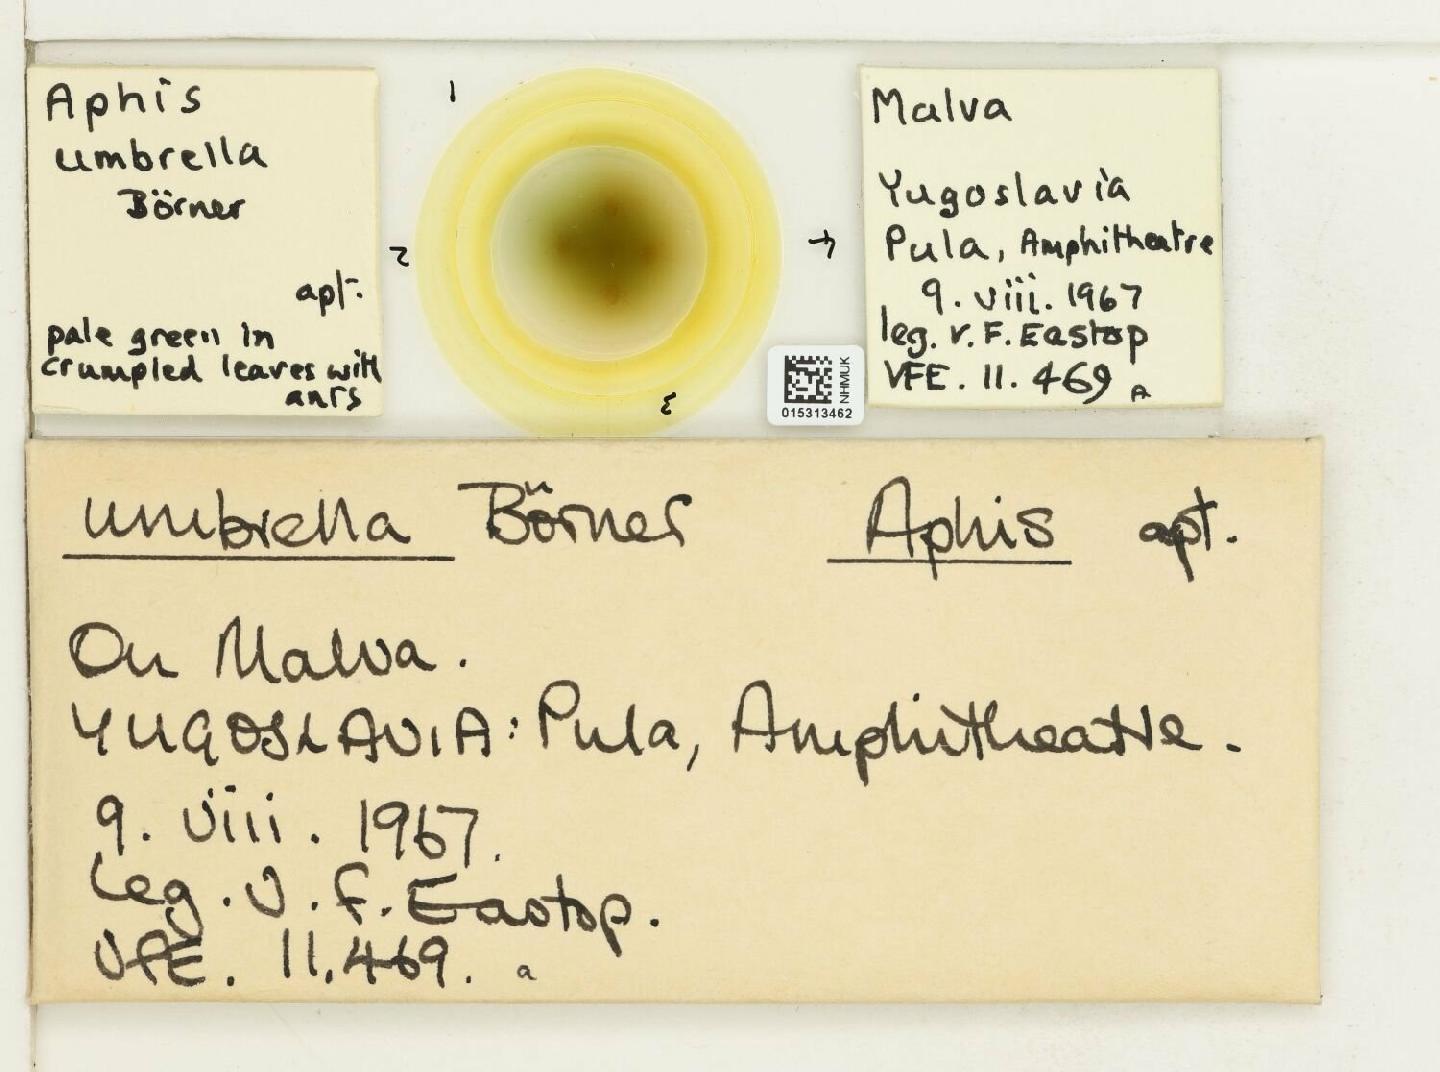 Aphis
umbrella
Börner
apt.
pale green in
crumpled leaves with
ants
1
2
3
4
Malva
Yugoslavia
Pula, Amphitheatre
9. viii. 1967
leg. V. F. Eastop
VFE. 11. 469 A
NHMUK
015313462
umbrella Börner Aphis apt.
On Malva.
YUGOSLAVIA: Pula, Amphitheatre.
9. viii. 1967.
Leg. V. F. Eastop.
VFE. 11,469. a